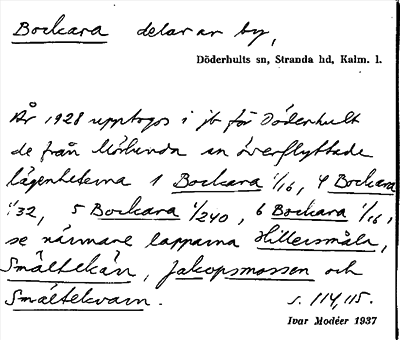 Bockara delar av by,
Döderhults sn, Stranda hd, Kalm. l.
År 1928 upptogos i jb för Döderhult
de från Mörlunda sn överflyttade
lägenheterna 1 Bockara 1/16, 4 Bockara
1/32, 5 Bockara 1/240, 6 Bockara 1/16,
se närmare lapparna Hillersmåla,
Smältekärr, Jakopsmossen och
Smältekvarn. s. 114, 115.
Ivar Modéer 1937